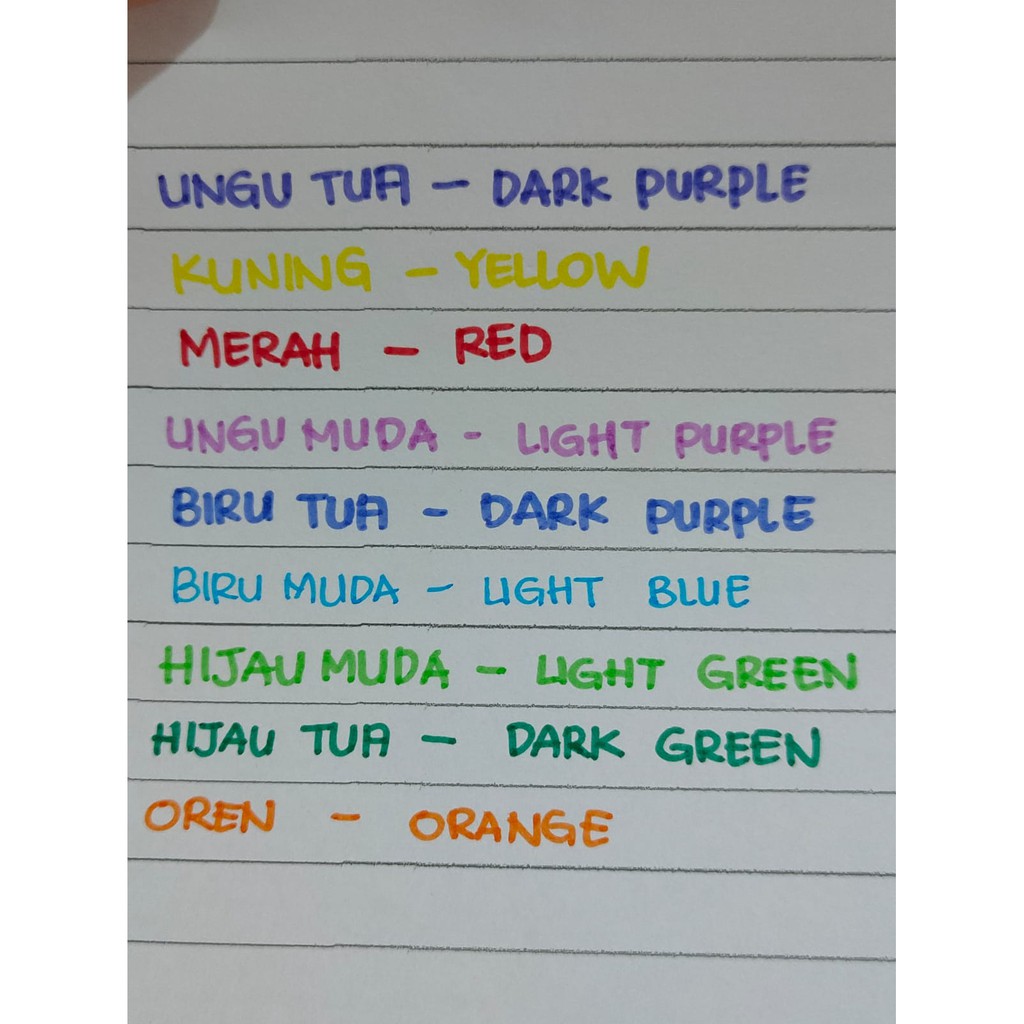 UNGU TUA – DARK PURPLE
KUNING – YELLOW
MERAH – RED
UNGU MUDA - LIGHT PURPLE
BIRU TUA – DARK PURPLE
BIRU MUDA – LIGHT BLUE
HIJAU MUDA – LIGHT GREEN
HIJAU TUA – DARK GREEN
OREN – ORANGE